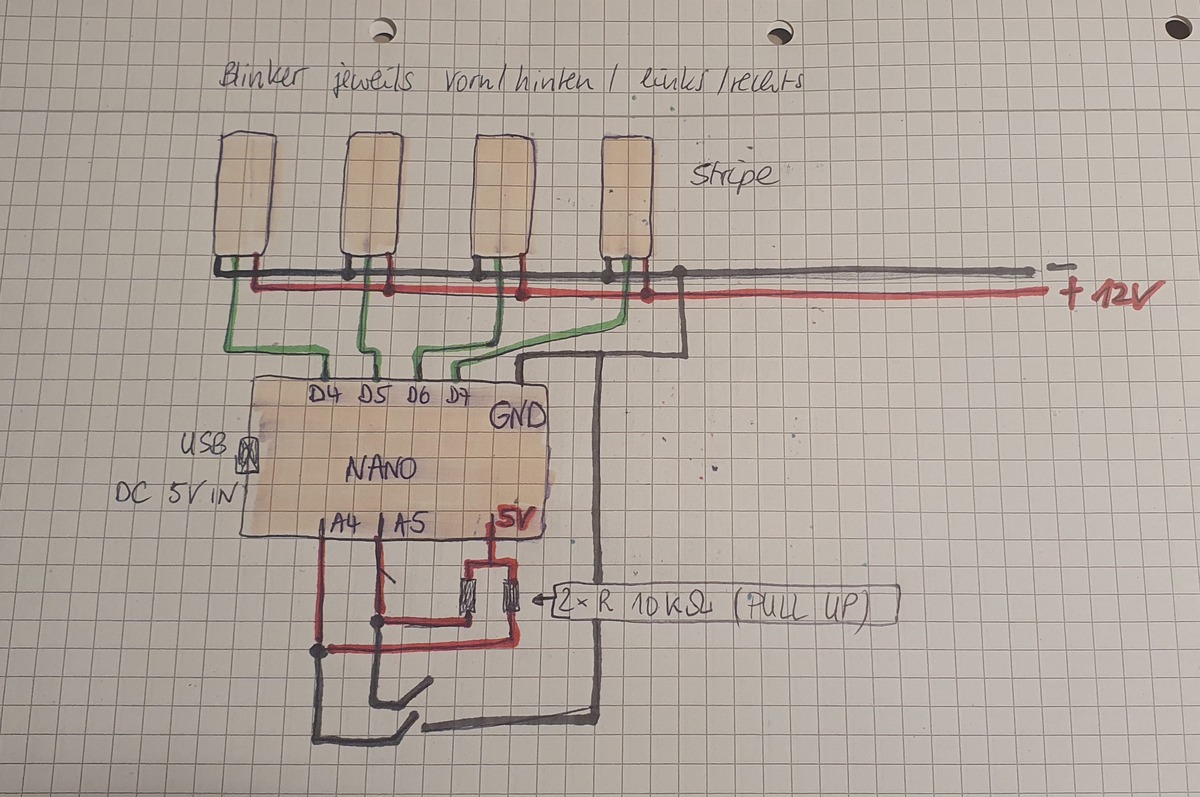 Blinker jeweils vorn/hinten/links/rechts
Stripe
−
+ 12V
D4 D5 D6 D7
GND
USB
NANO
DC 5V IN
A4 A5 5V
2x R 10KΩ (PULL UP)